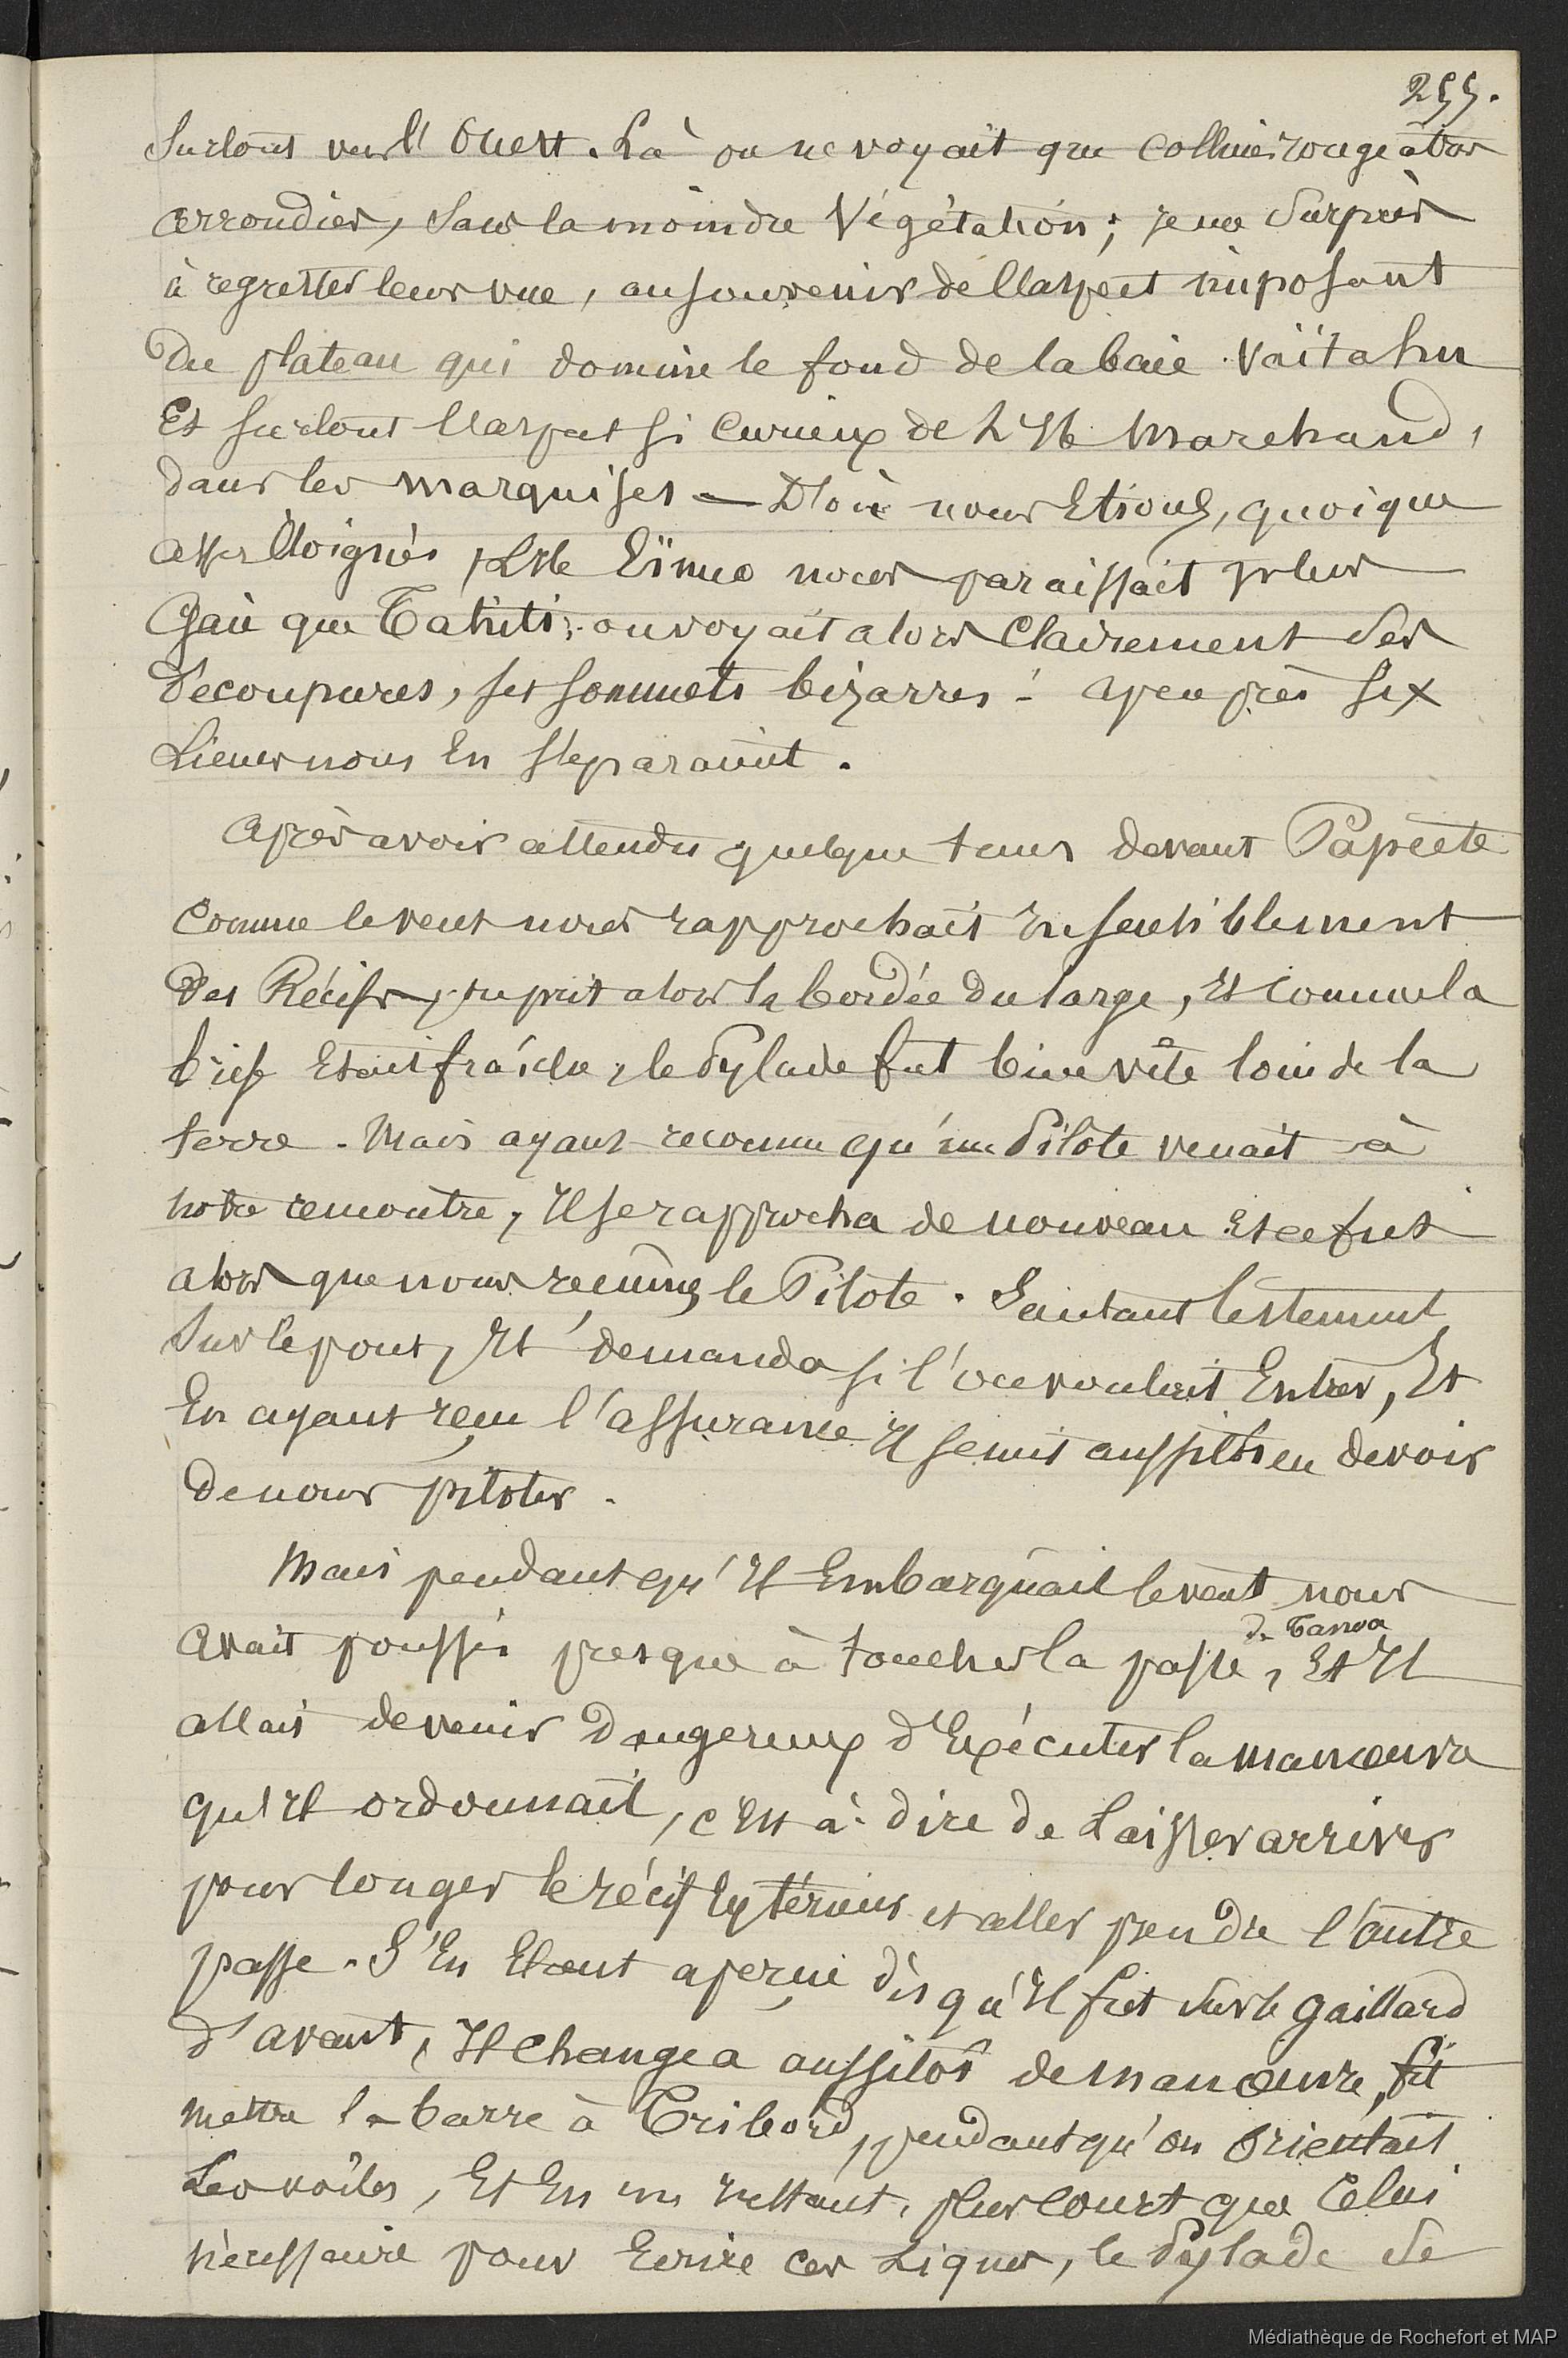 255.
Surtout vers l' Ouest. Là on ne voyait que collines rougeâtres
arrondies, sans la moindre végétation ; je me surpris
à regretter leur vue, au souvenir de l'aspect imposant
du plateau qui domine le fond de la baie Vaïtahu
Et surtout l'aspect si curieux de L'Ile Marchand,
dans les marquises — D'où nous Etions, quoique
assez Eloignés, L'Ile Eïmeo nous paraissait plus
Gaie que Tahiti ; on voyait alors Clairement ses
découpures, ses sommets bizarres - a peu près six
Lieues nous En séparaient.
Après avoir attendu quelque tems devant Papeete
comme le vent nous rapprochait Insensiblement
des Récifs, on prit alors la bordée du large, Et comme la
brise Etait fraîche, le Pylade fut bien vîte loin de la
terre. Mais ayant reconnu qu'un Pilote venait à
notre rencontre, Il se rapprocha de nouveau Et ce fut
alors que nous reçûmes le Pilote. Sautant lestement
sur le pont, Il demanda si l'on voulait Entrer, Et
En ayant reçu l'assurance Il se mit aussitôt en devoir
de nous piloter.
Mais pendant qu'Il Embarquait le vent nous
de Tanoa
avait poussés presque à toucher la passe, Et Il
allait devenir dangereux d'Exécuter la manoeuvre
qu'Il ordonnait, c'Est à-dire de Laisser arriver
pour longer le récif Extérieur et aller prendre l'autre
passe. S'En Etant aperçu dès qu'Il fut sur le gaillard
d'avant, Il changea aussitôt de manoeuvre, fit
mettre la barre à Tribord, pendant qu'on Orientait
Les voîles, Et En un Instant, plus court que Celui
nécessaire pour Ecrire ces Lignes, le Pylade se
Médiathèque de Rochefort et MAP